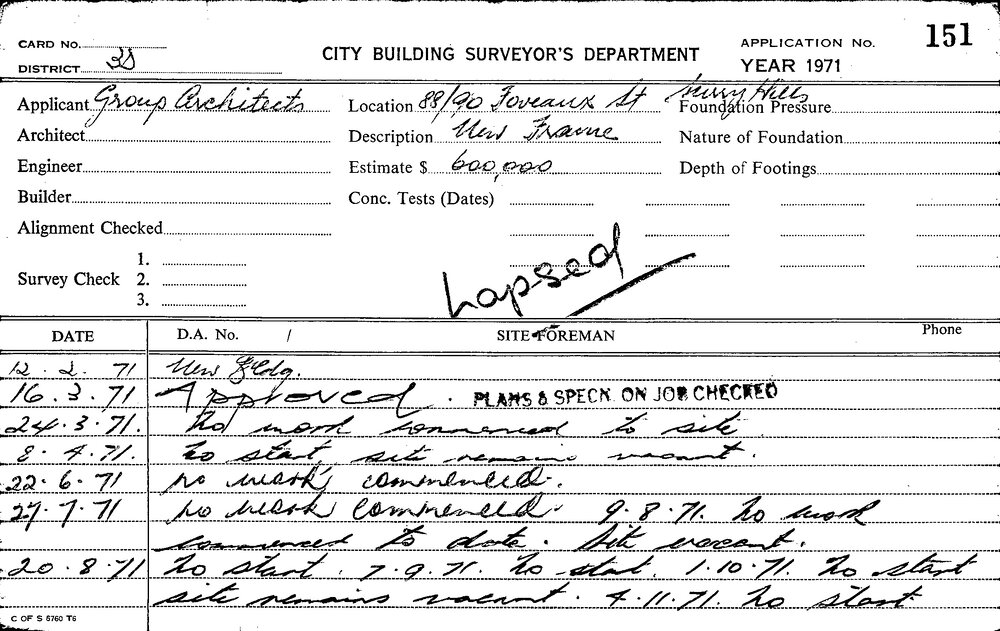 CARD NO.
DISTRICT
CITY BUILDING SURVEYOR'S DEPARTMENT
APPLICATION No. 151
YEAR 1971
Applicant Group Architects
Location 88/90 Foveaux St Surry Hills
Foundation Pressure
Architect
Description New Frame
Nature of Foundation
Engineer
Estimate $ 600,000
Depth of Footings
Builder
Conc. Tests (Dates)
Alignment Checked
Survey Check 1.
2.
3.
Lapsed
DATE D.A. No. / SITE FOREMAN Phone
12. 2. 71 New Bldg.
16. 3. 71 Approved. PLANS & SPECN. ON JOB CHECKED
24. 3. 71. No work commenced to site
8. 4. 71. No start site remains vacant.
22. 6. 71 No work commenced.
27. 7. 71 No work commenced. 9.8.71. No work
commenced to date. Site vacant.
20. 8. 71 No start. 7.9.71. No start. 1.10.71. No start
site remains vacant. 4.11.71. No start.
C OF S 5760 T6